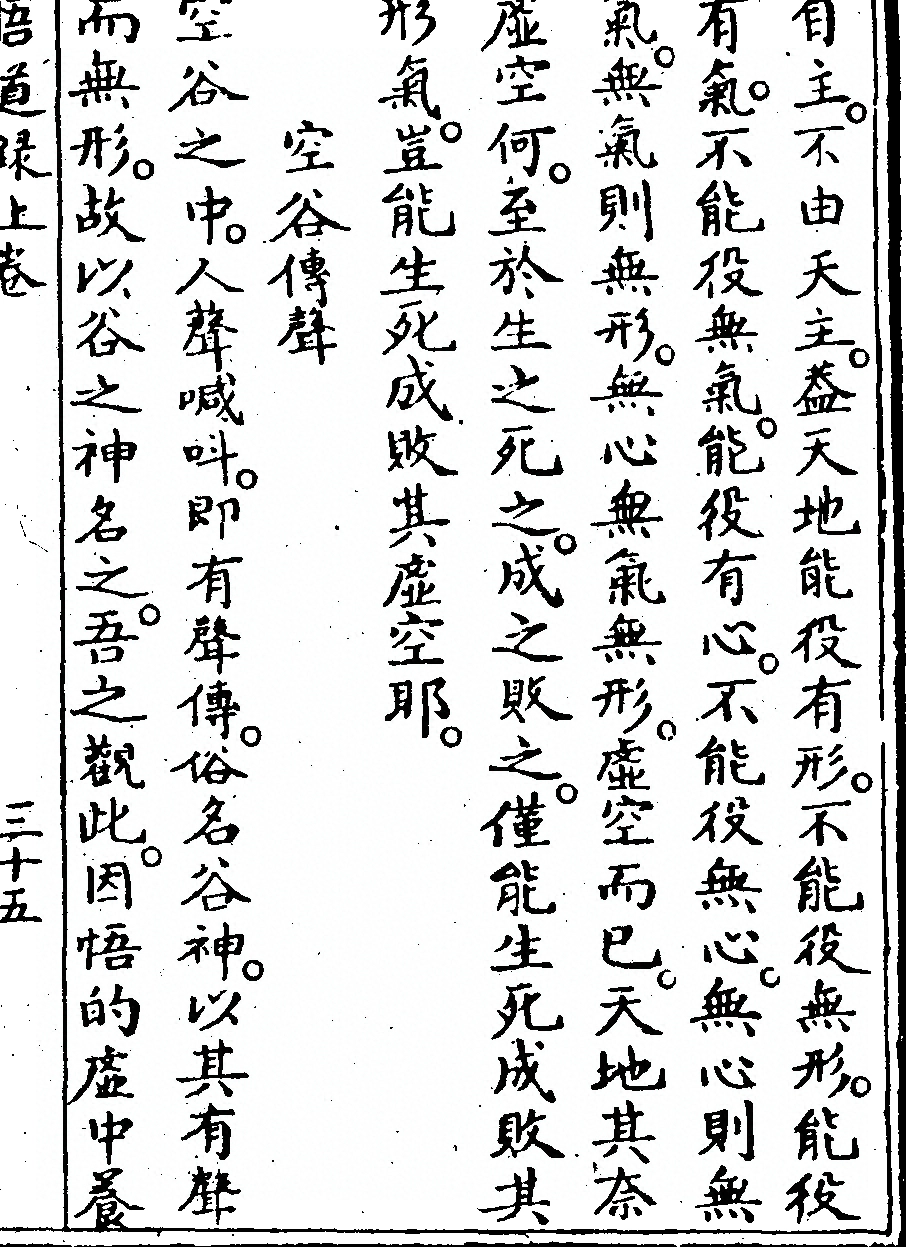 自主。不由天主。蓋天地能役有形。不能役無形。能役
有氣。不能役無氣。能役有心。不能役無心。無心則無
氣。無氣則無形。無心無氣無形。虛空而已。天地其奈
虛空何。至於生之死之。成之敗之。僅能生死成敗其
形氣。豈能生死成敗其虛空耶。
空谷傳聲
空谷之中。人聲喊呌。即有聲傳。俗名谷神。以其有聲
而無形。故以谷之神名之。吾之觀此。因悟的虛中養
悟道录上卷
三十五